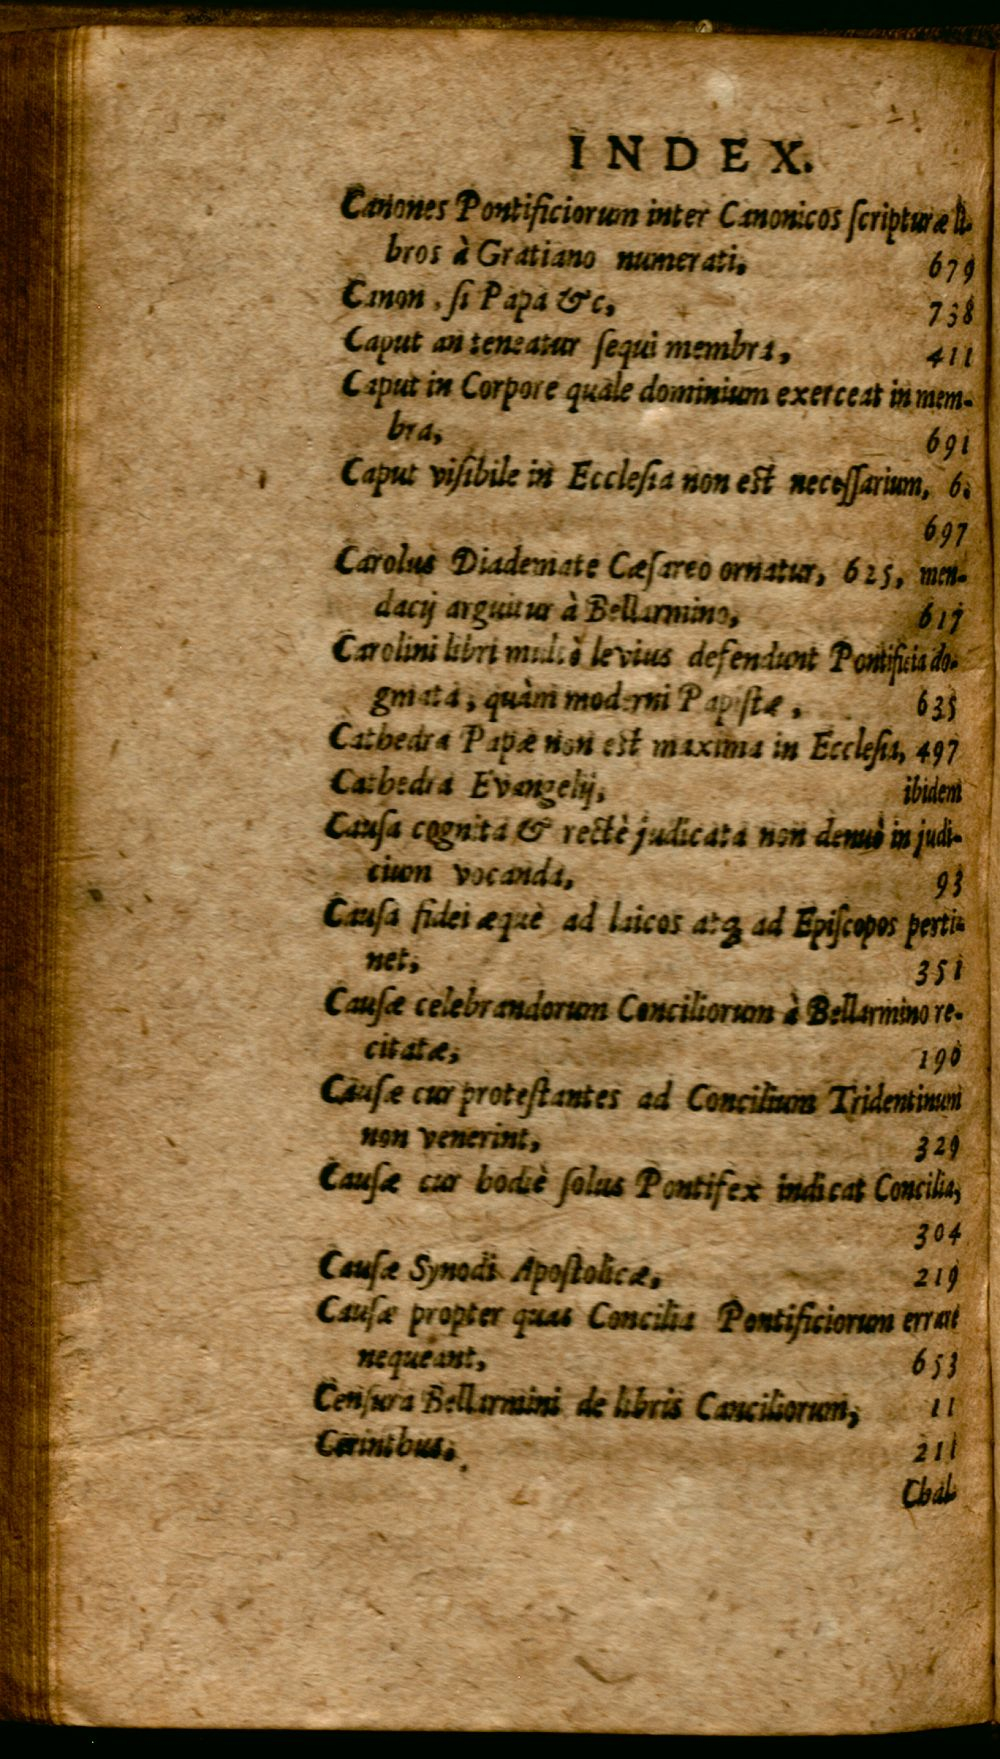 INDEX.
Canones Pontificiorum inter Canonicos ſcripturæ li-
bros à Gratiano numerati, 679
Canon, ſi Papa &c, 738
Caput an teneatur ſequi membra, 411
Caput in Corpore quale dominium exerceat in mem-
bra, 691
Caput viſibile in Eccleſia non est neceſſarium, 6.
697
Carolus Diademate Cæſareo ornatur, 625, men-
dacij arguitur à Bellarmino, 617
Carolini libri multò levius defendunt Pontificia do-
gmata, quàm moderni Papiſtæ, 635
Cathedra Papæ non est maxima in Eccleſia, 497
Cathedra Evangelij, ibidem
Cauſa cognita & rectè judicata non denuò in judi-
cium vocanda, 93
Cauſa fidei æquè ad laicos atq; ad Epiſcopos perti-
net, 351
Cauſæ celebrandorum Conciliorum à Bellarmino re-
citatæ, 190
Cauſæ cur proteſtantes ad Concilium Tridentinum
non venerint, 329
Cauſæ cur hodiè ſolus Pontifex indicat Concilia,
304
Cauſæ Synodi Apoſtolicæ, 219
Cauſæ propter quas Concilia Pontificiorum errare
nequeant, 653
Cenſura Bellarmini de libris Canciliorum, 11
Cerinthus, 211
Chal-